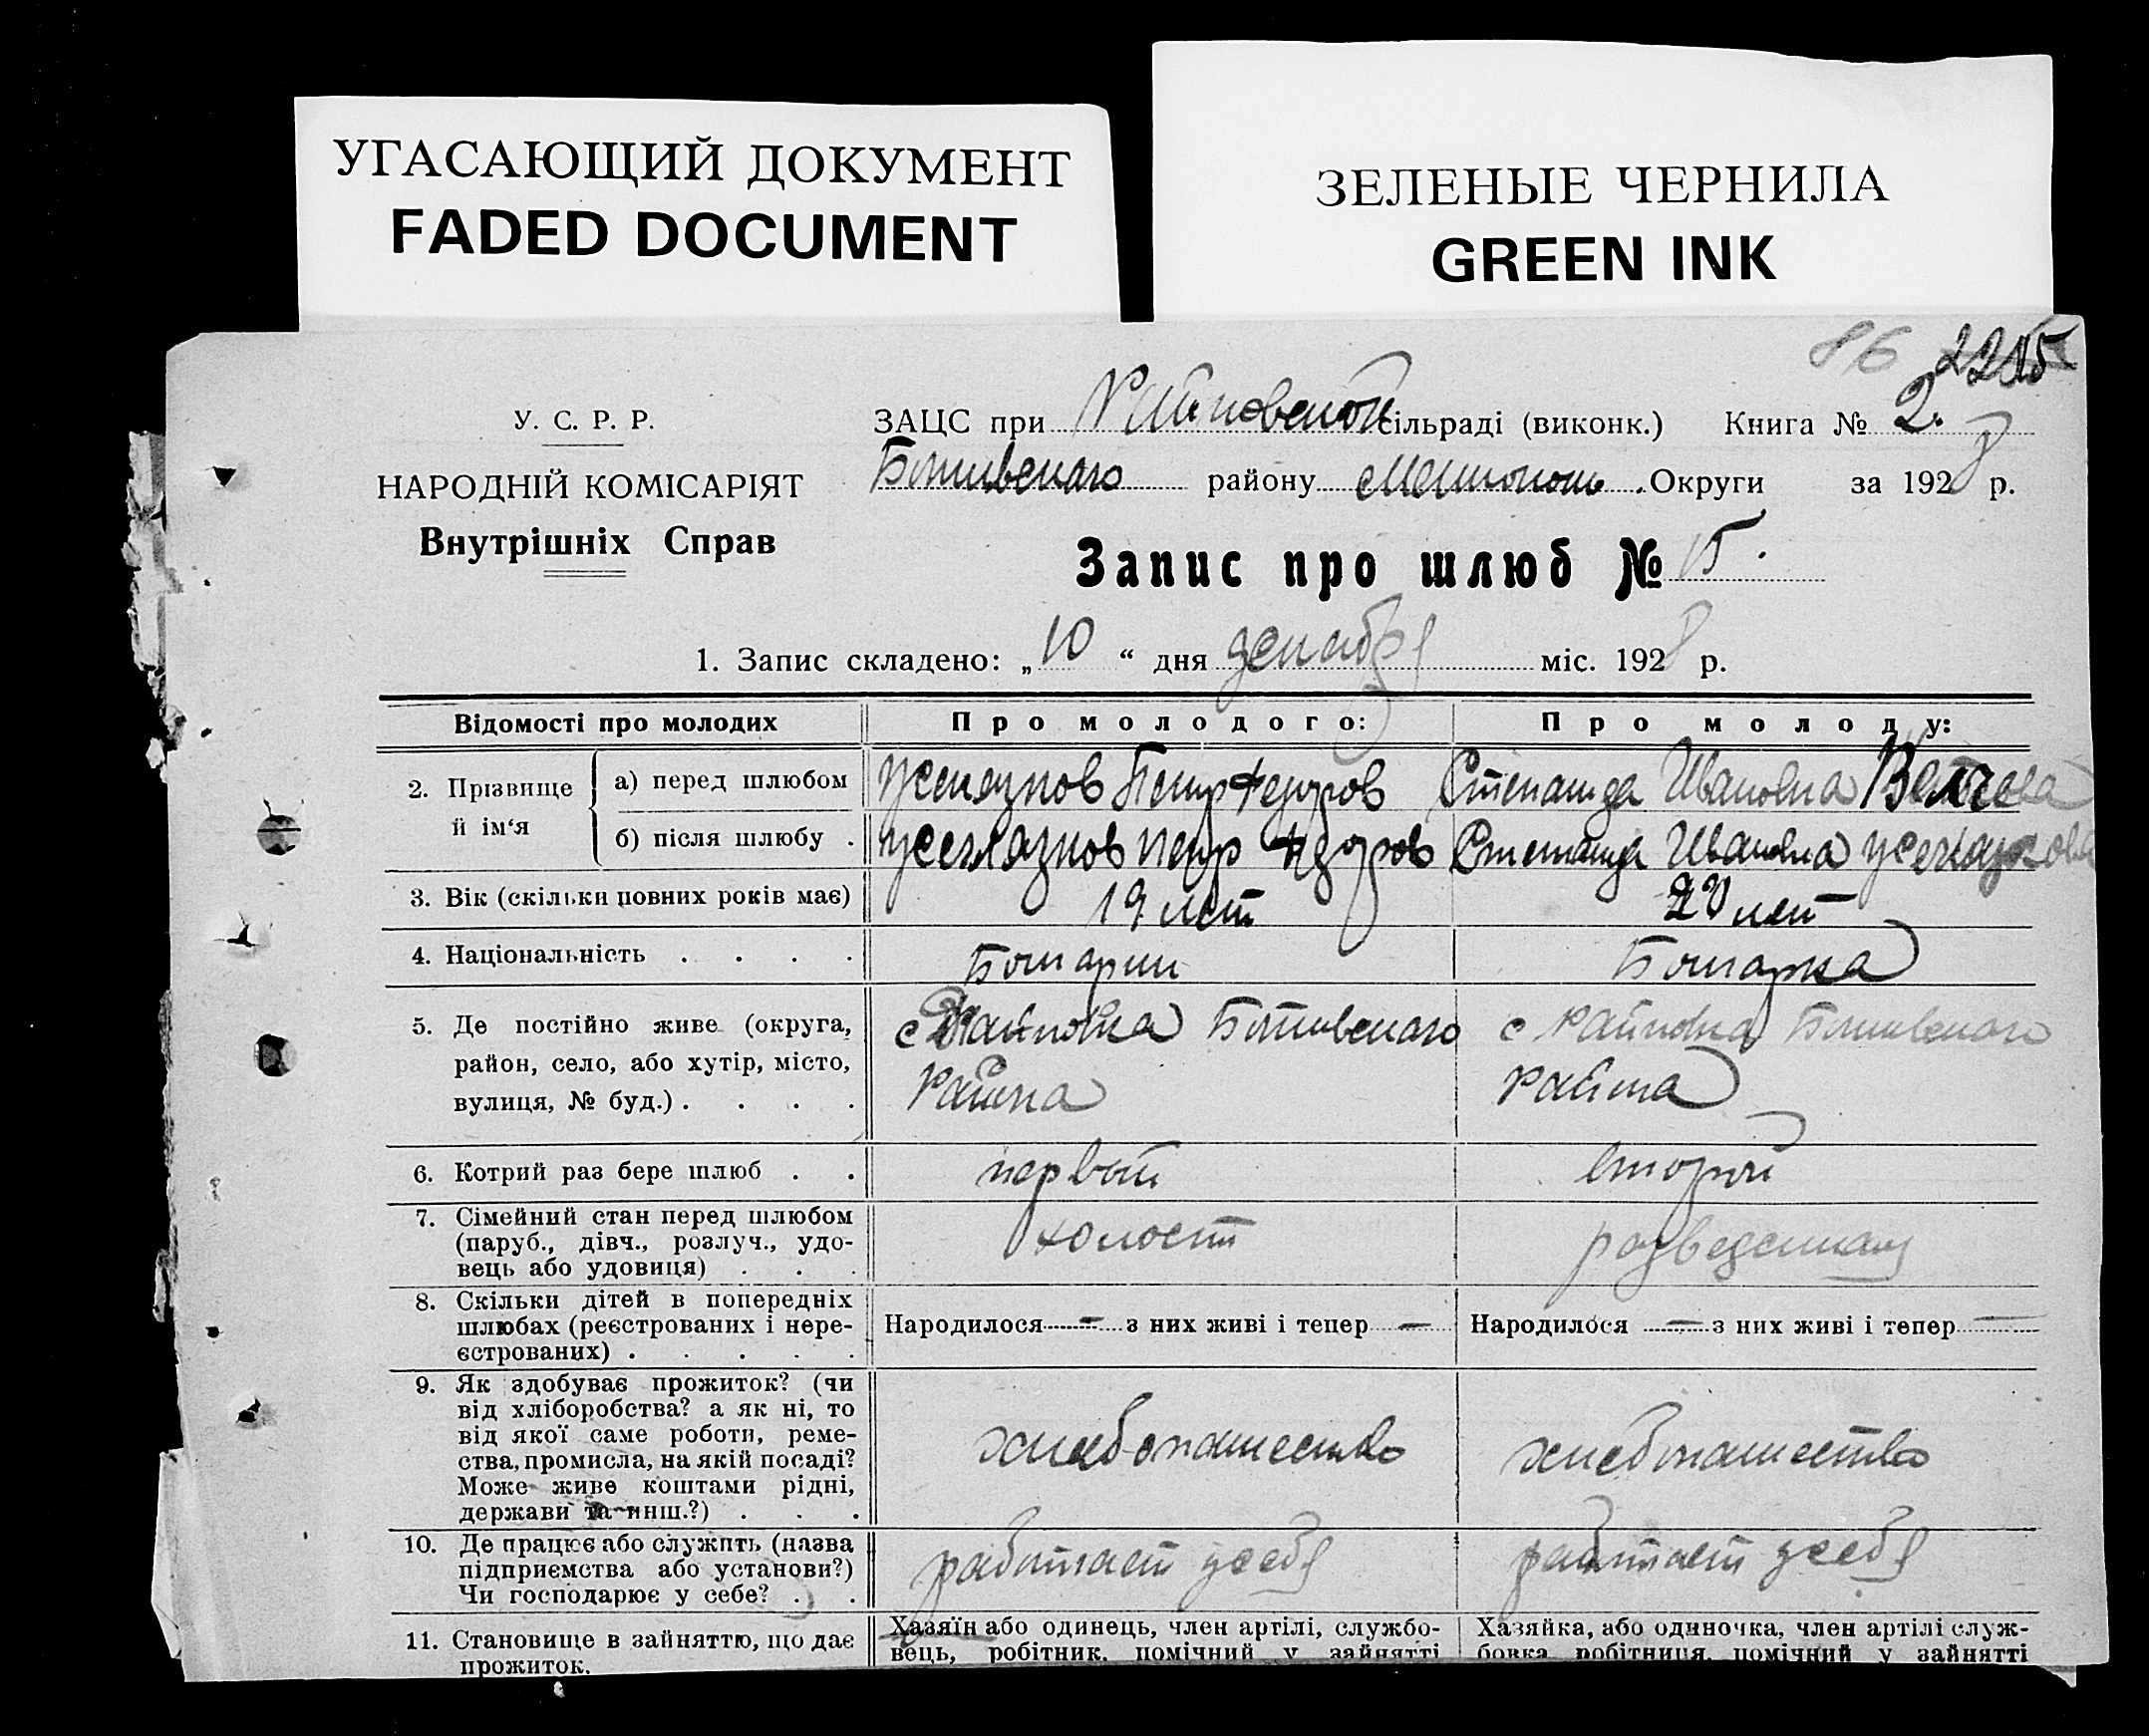 УГАСАЮЩИЙ ДОКУМЕНТ
FADED DOCUMENT
ЗЕЛЕНЫЕ ЧЕРНИЛА
GREEN INK
86
У. С. Р. Р.
НАРОДНІЙ КОМІСАРІЯТ
Внутрішніх Справ
ЗАЦС при Райновской сільраді (виконк.) Книга № 2.
Ботивского району Мелитопол. Округи за 1928 р.
Запис про шлюб № 15.
1. Запис складено: „10“ дня декабря міс. 1928 р.
Відомості про молодих Про молодого: Про молоду:
2. Прізвище й ім‘я
а) перед шлюбом Петр Федоров Степанида Ивановна Велчева
б) після шлюбу . Петр Федоров Степанида Ивановна
3. Вік (скільки повних років має) 19 лет 20 лет
4. Національність . . . . Болгарин Болгарка
5. Де постійно живе (округа, район, село, або хутір, місто, вулиця, № буд.) . . . .
с Райновка Ботивского
Района
с Райновка Ботивского
Района
6. Котрий раз бере шлюб . . первый второй
7. Сімейний стан перед шлюбом (паруб., дівч., розлуч., удовець або удовиця) . . . холост разведенная
8. Скільки дітей в попередніх шлюбах (реєстрованих і нереєстрованих) . . . . .
Народилося — з них живі і тепер —
Народилося — з них живі і тепер —
9. Як здобуває прожиток? (чи від хліборобства? а як ні, то від якої саме роботи, ремества, промисла, на якій посаді? Може живе коштами рідні, держави та инш.?) . . .
хлебопашество
хлебопашество
10. Де працює або служить (назва підприємства або установи?) Чи господарює у себе? . .
работает у себя
работает у себя
11. Становище в зайняттю, що дає прожиток.
Хазяїн або одинець, член артілі, службовець, робітник, помічний у зайнятті
Хазяйка, або одиночка, член артілі службовка робітниця, помічний у зайнятті